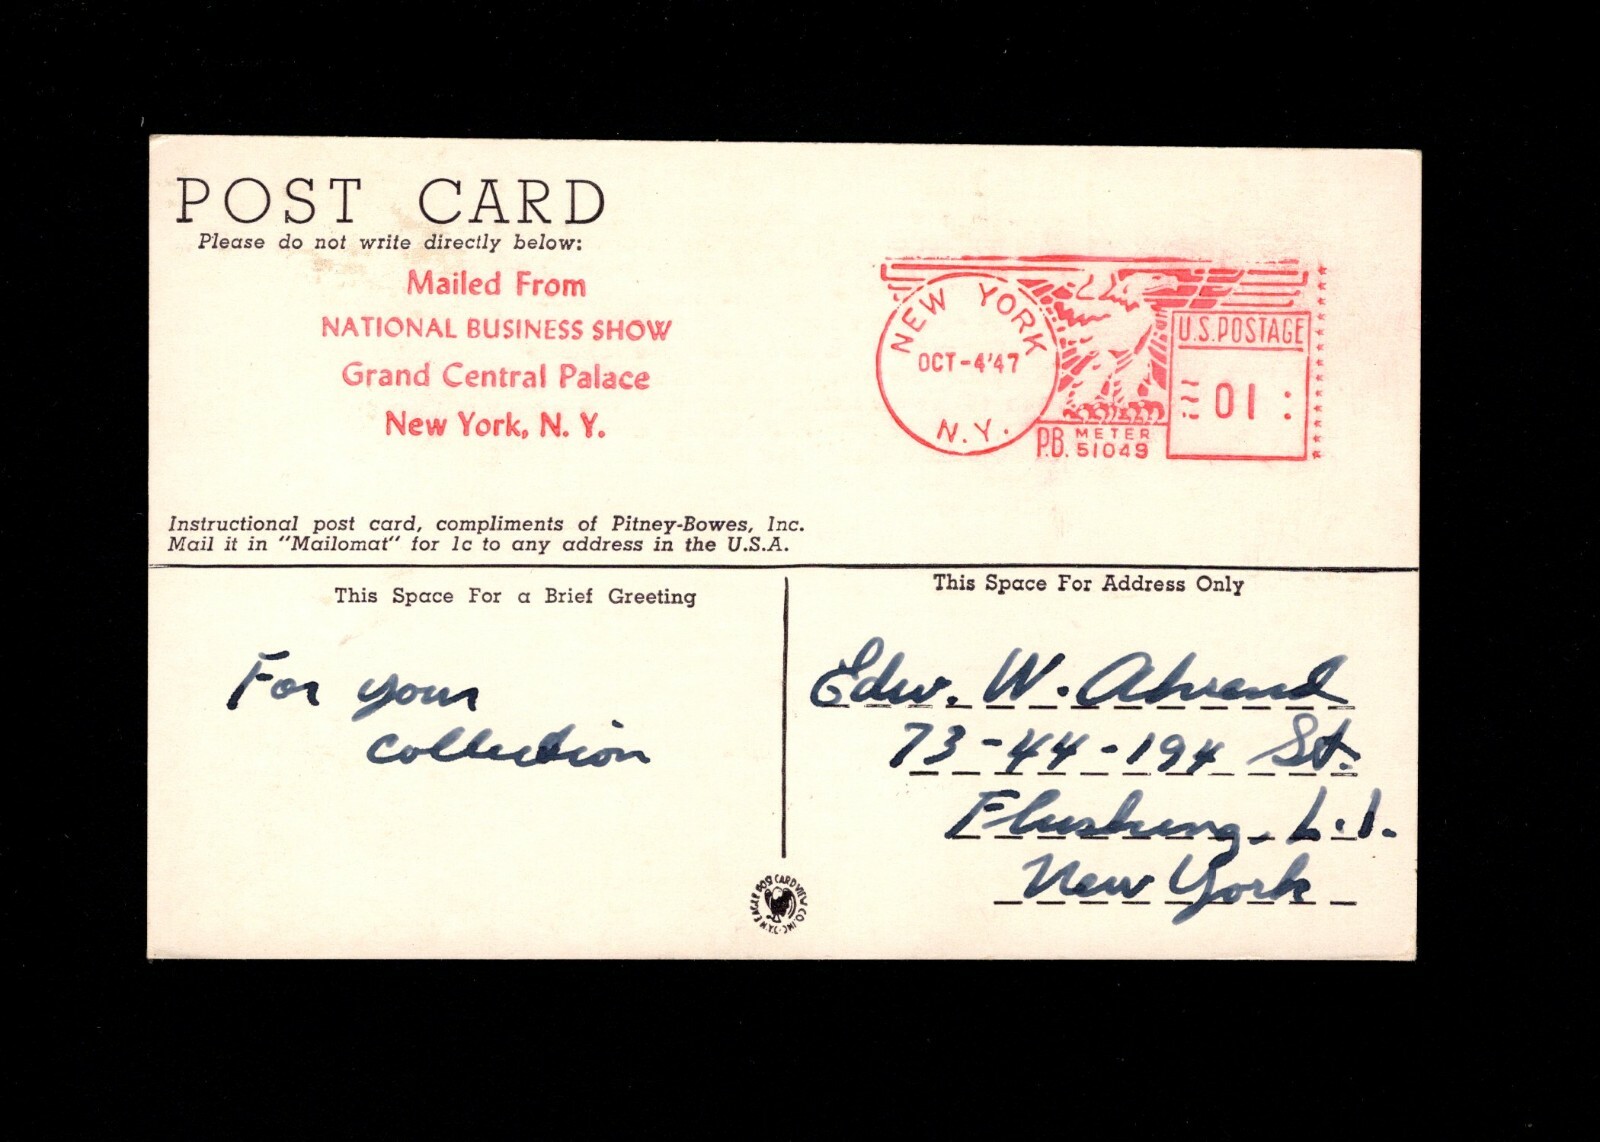 POST CARD
Please do not write directly below:
Mailed From
NATIONAL BUSINESS SHOW
Grand Central Palace
New York, N. Y.
NEW YORK
OCT-4'47
N.Y.
P.B. METER
51049
U.S. POSTAGE
01
Instructional post card, compliments of Pitney-Bowes, Inc.
Mail it in "Mailomat" for 1c to any address in the U.S.A.
This Space For a Brief Greeting
For your
collection
This Space For Address Only
Edw. W. Ahrend
73-44-194 St.
Flushing, L.I.
New York
EAGLE POST CARD VIEW CO. INC. N.Y.C.